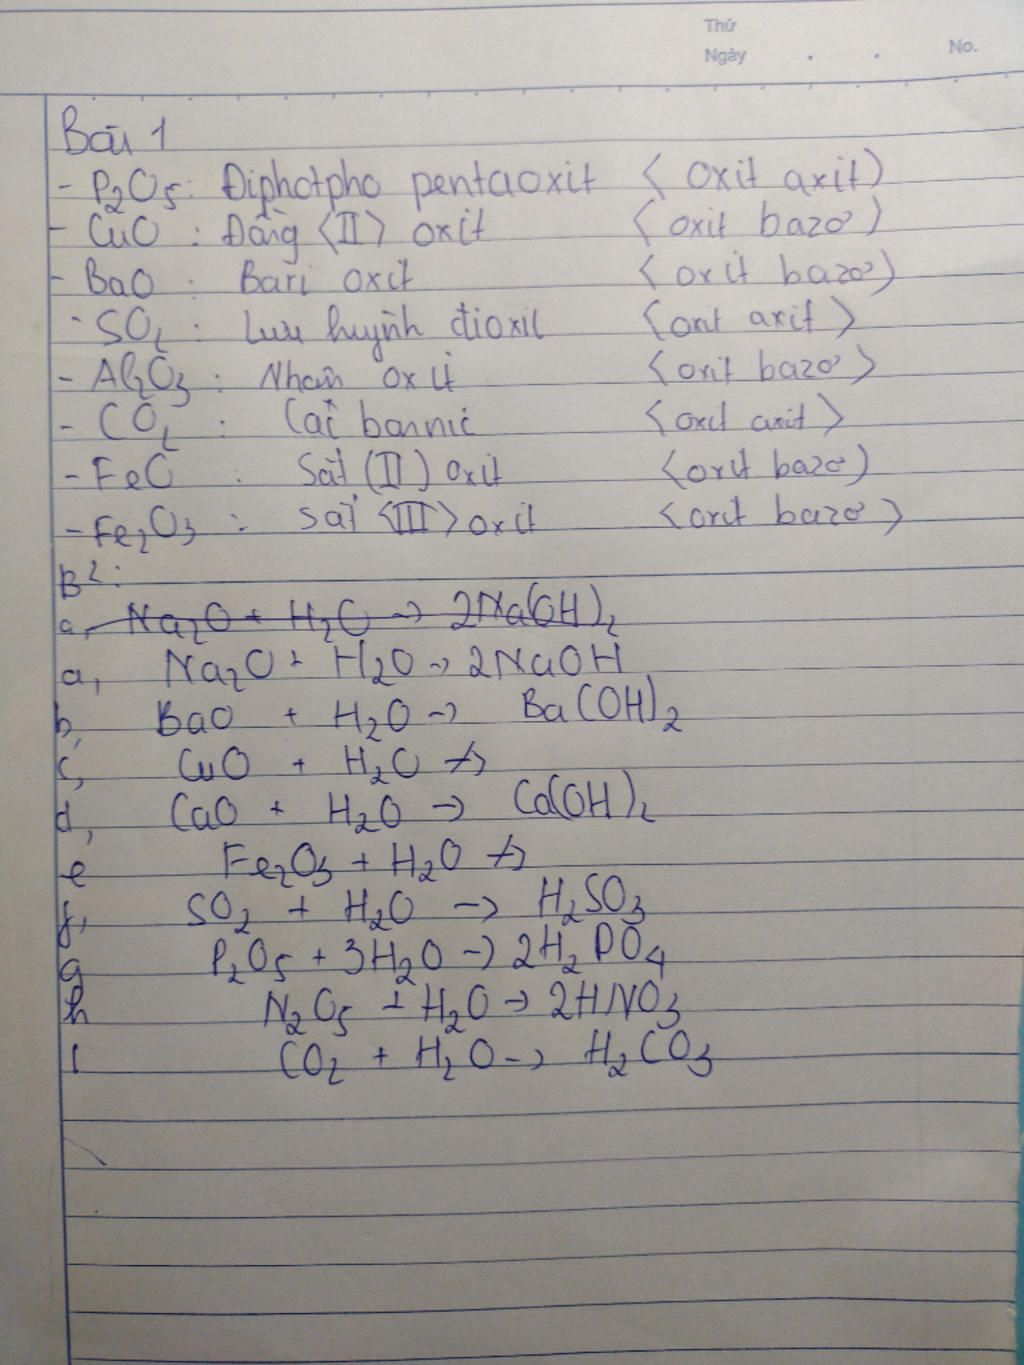 Thứ
Ngày . . No.
Bài 1
- P₂O₅ : Điphotpho pentaoxit < oxit axit)
- CuO : Đồng <II> oxit < oxit bazơ )
- BaO : Bari oxit < oxit bazơ)
- SO₂ : Lưu huỳnh đioxit <oxit axit >
- Al₂O₃ : Nhôm oxit <oxit bazơ >
- CO₂ : Cacbonnic <oxit axit>
- FeO : Sắt (II) oxit <oxit bazơ)
- Fe₂O₃ : Sắt <III> oxit <oxit bazơ >
B2:
a, Na₂O + H₂O -> 2Na(OH)₂
a, Na₂O + H₂O -> 2NaOH
b, BaO + H₂O -> Ba(OH)₂
c, CuO + H₂O ↛
d, CaO + H₂O -> Ca(OH)₂
e Fe₂O₃ + H₂O ↛
f, SO₂ + H₂O -> H₂SO₃
g P₂O₅ + 3H₂O -> 2H₂PO₄
h N₂O₅ + H₂O -> 2HNO₃
I CO₂ + H₂O -> H₂CO₃